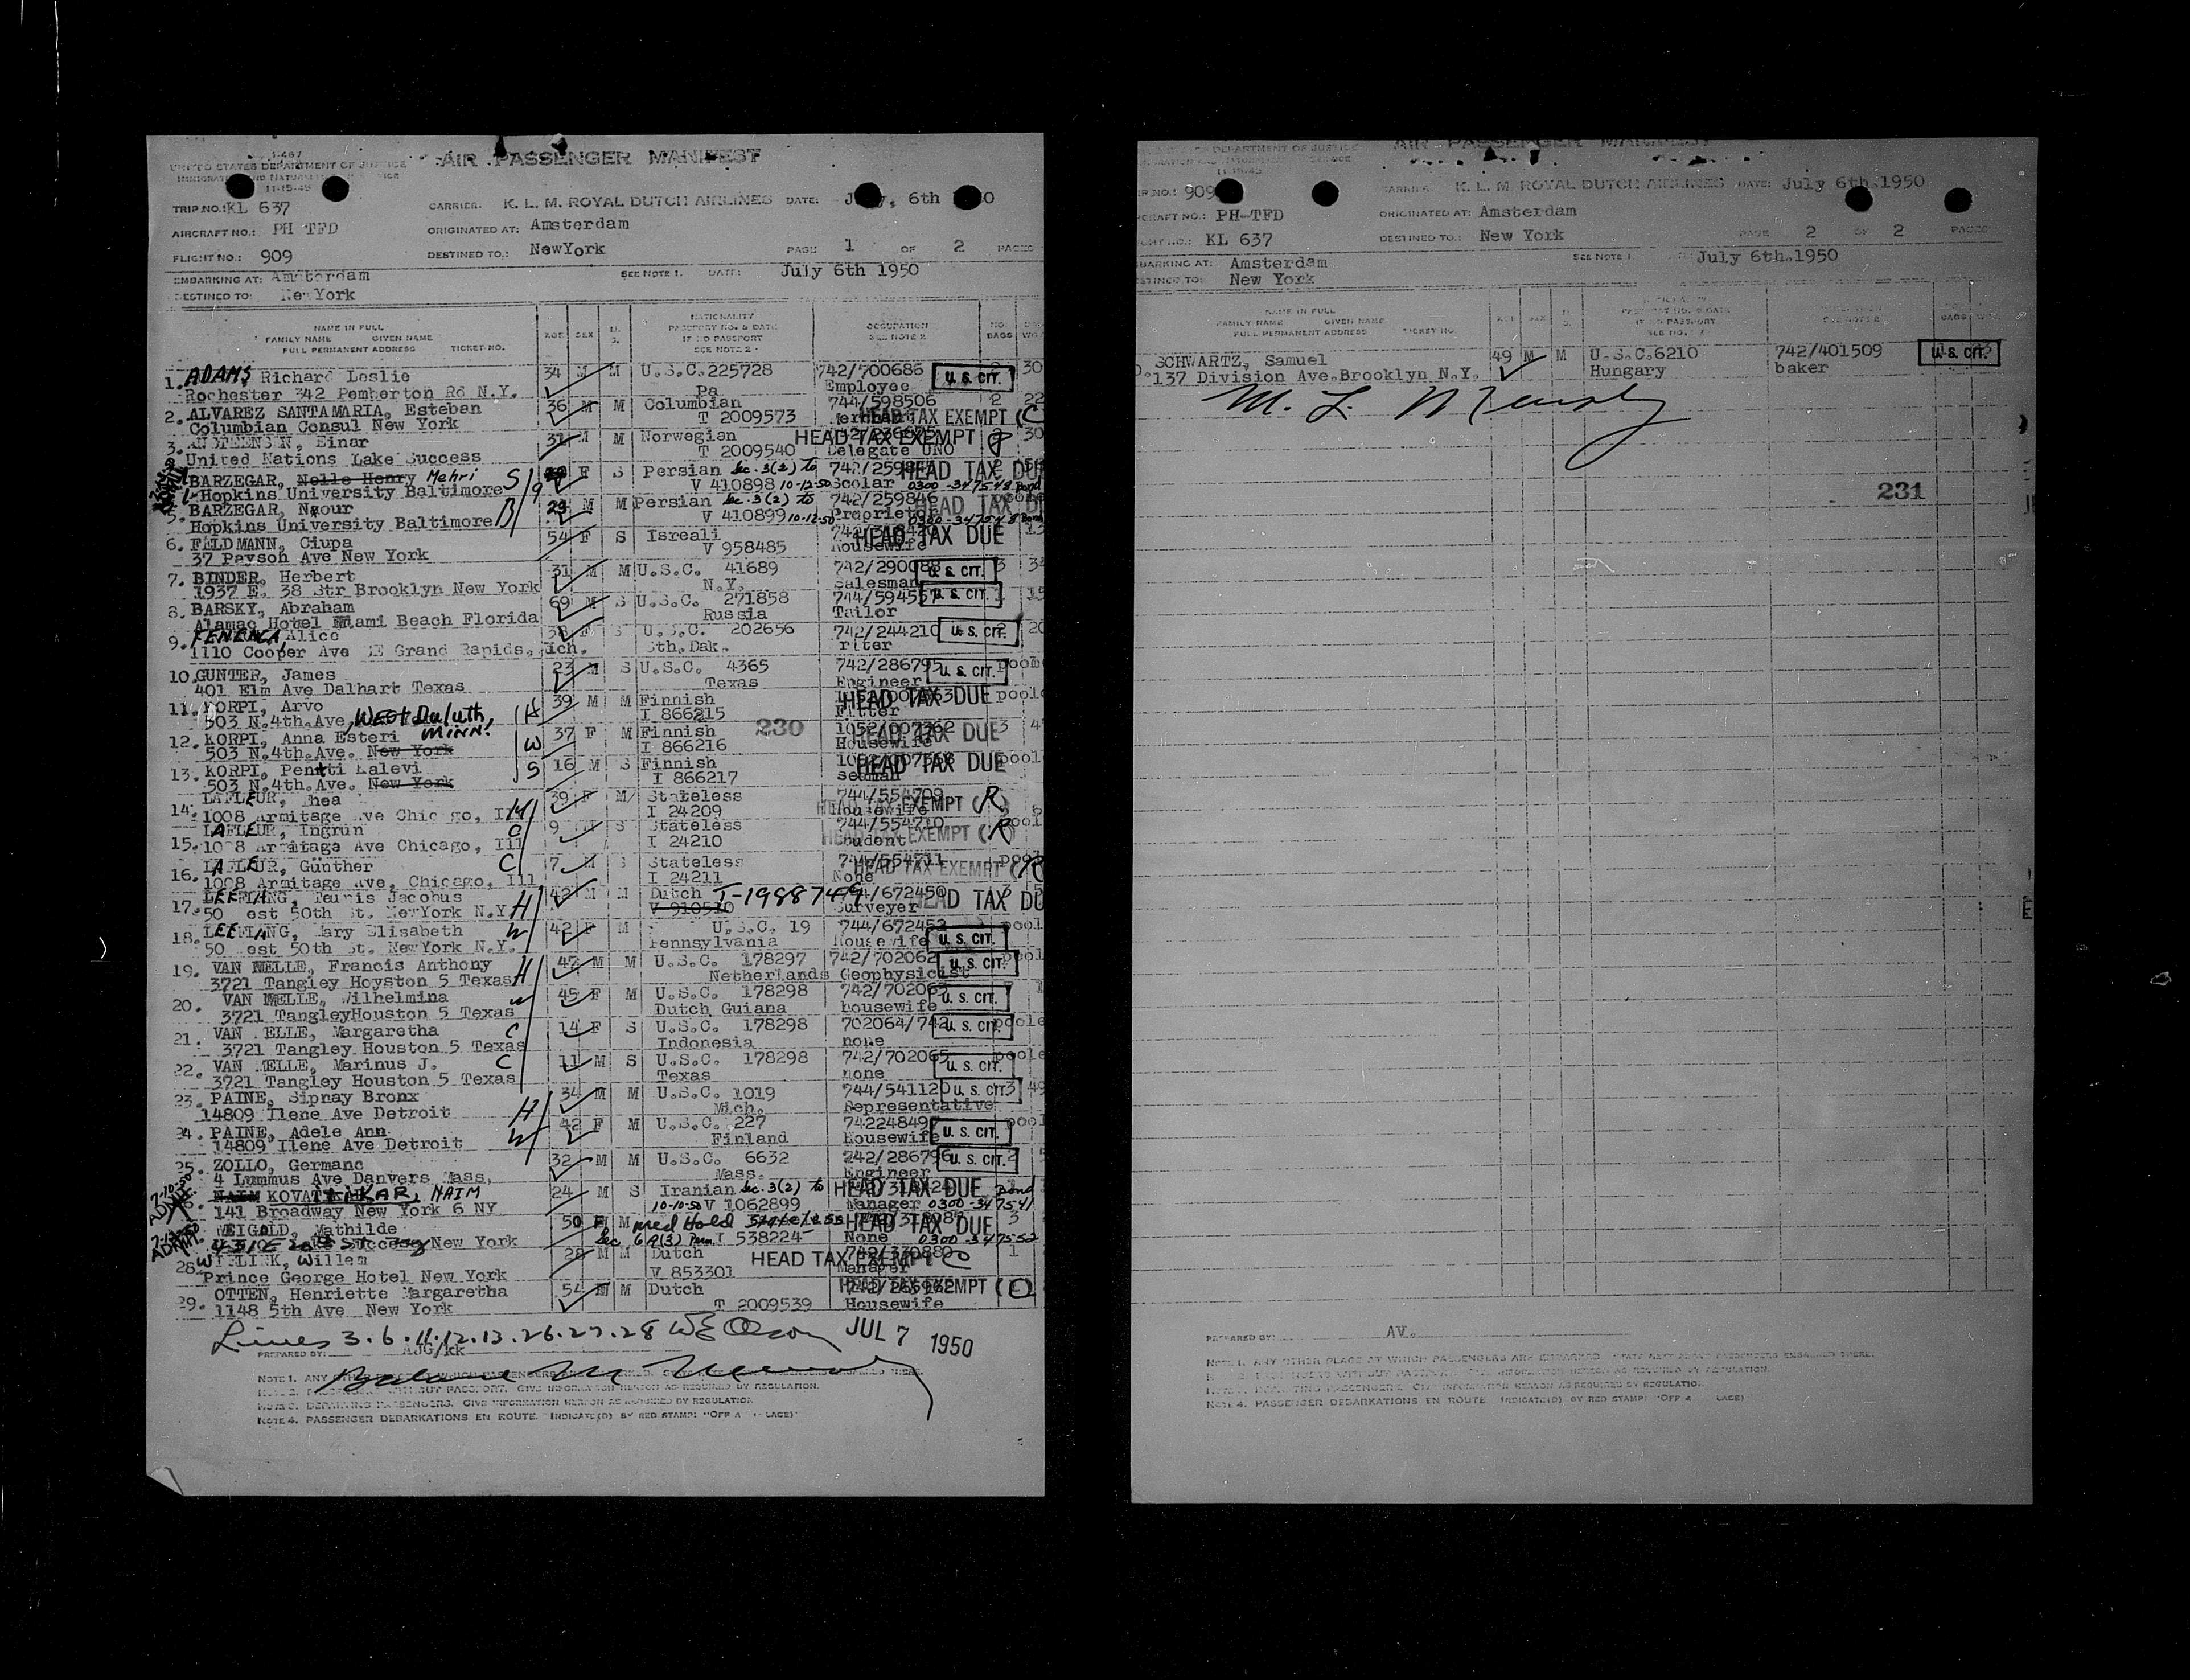 I-467
UNITED STATES DEPARTMENT OF JUSTICE
AIR PASSENGER MANIFEST
11-15-45
TRIP NO.: KL 637 CARRIER: K. L. M. ROYAL DUTCH AIRLINES DATE: 6th 0
AIRCRAFT NO.: PH TFD ORIGINATED AT: Amsterdam
FLIGHT NO.: 909 DESTINED TO: NewYork PAGE 1 OF 2 PAGES
EMBARKING AT: Amsterdam SEE NOTE 1. DATE: July 6th 1950
DESTINED TO: New York
NAME IN FULL AGE SEX M. S. NATIONALITY OCCUPATION NO. BAGS
FAMILY NAME GIVEN NAME PASSPORT NO. & DATE SEE NOTE 2
FULL PERMANENT ADDRESS TICKET NO. IF NO PASSPORT
SEE NOTE 2
1. ADAMS Richard Leslie 34 M M U.S.C. 225728 742/700686 U. S. CIT. 30
Rochester 342 Pemberton Rd N.Y. Pa Employee
2. ALVAREZ SANTAMARIA, Esteben 36 M M Columbian 744/598506 2 22
Columbian Consul New York T 2009573 HEAD TAX EXEMPT (C
3. Einar 31 M M Norwegian HEAD TAX EXEMPT 30
United Nations Lake Success T 2009540 Delegate UNO
BARZEGAR, Nelle Henry Mehri S F S Persian Sec. 3(2) to 742/25984 HEAD TAX DUE
Hopkins University Baltimore V 410898 10-12-50 Scolar 0300-347548 Bond
5. BARZEGAR, Nour B 29 M M Persian Sec. 3(2) to 742/259846 HEAD TAX D
Hopkins University Baltimore V 410899 10-12-50 Proprietor 0300-347548 Bond
6. FELDMANN, Ciupa 54 F S Isreali HEAD TAX DUE 13
37 Payson Ave New York V 958485 Housewife
7. BINDER, Herbert 31 M M U.S.C. 41689 742/290088 U. S. CIT. 3 34
1937 E. 38 Str Brooklyn New York N.Y. Salesman
8. BARSKY, Abraham 69 M S U.S.C. 271858 744/594557 U. S. CIT. 1 15
Alamac Hotel Miami Beach Florida Russia Tailor
9. FENENGA, Alice F S U.S.C. 202656 742/244210 U. S. CIT. 2 20
1110 Cooper Ave SE Grand Rapids, ich. Sth. Dak. riter
10. GUNTER, James 23 M S U.S.C. 4365 742/286795 U. S. CIT. poole
401 Elm Ave Dalhart Texas Texas Engineer
11. KORPI, Arvo H 39 M M Finnish HEAD TAX DUE poole
503 N.4th.Ave, West Duluth, I 866215 Fitter
12. KORPI, Anna Esteri MINN. W 37 F M Finnish 230 1052/007362 HEAD TAX DUE 3 4
503 N.4th.Ave. New York I 866216 Housewife
13. KORPI, Pentti Kalevi S 16 M S Finnish HEAD TAX DUE poole
503 N.4th.Ave. New York I 866217 seaman
14. LAFLEUR, Thea 39 F M Stateless 744/554709 HEAD TAX EXEMPT (R)
1008 Armitage Ave Chicago, Ill I 24209 Housewife
15. LAFLEUR, Ingrun C 9 S Stateless 744/554710 HEAD TAX EXEMPT (R) pool
1008 Armitage Ave Chicago, Ill I 24210 Student
16. LAFLEUR, Günther C 7 M S Stateless 744/554711 HEAD TAX EXEMPT (R pool
1008 Armitage Ave, Chicago, Ill I 24211 None
17. LEEFLANG, Teunis Jacobus H 42 M M Dutch T-1988749 /672450 3
50 est 50th St. NewYork N.Y. V 910510 Surveyer HEAD TAX DU
18. LEEFLANG, Mary Elisabeth W 42 F M U.S.C. 19 744/672452 pool
50 est 50th St. NewYork N.Y. Pennsylvania Housewife U. S. CIT.
19. VAN MELLE, Francis Anthony H 47 M M U.S.C. 178297 742/702062 U. S. CIT. pool
3721 Tangley Hoyston 5 Texas Netherlands Geophysicist
20. VAN MELLE, Wilhelmina W 45 F M U.S.C. 178298 742/702063 U. S. CIT.
3721 TangleyHouston 5 Texas Dutch Guiana housewife
21. VAN ELLE, Margaretha C 14 F S U.S.C. 178298 702064/742 U. S. CIT. poole
3721 Tangley Houston 5 Texas Indonesia none
22. VAN ELLE, Marinus J. C 11 M S U.S.C. 178298 742/702065 U. S. CIT. poole
3721 Tangley Houston 5 Texas Texas none
23. PAINE, Sipnay Bronx H 34 M M U.S.C. 1019 744/541120 U. S. CIT. 3 49
14809 Ilene Ave Detroit Mich. Representative
24. PAINE, Adele Ann W 42 F M U.S.C. 227 74224849 U. S. CIT. pool
14809 Ilene Ave Detroit Finland Housewife
25. ZOLLO, Germano 32 M M U.S.C. 6632 742/286796 U. S. CIT. 2
4 Lummus Ave Danvers Mass, Mass. Engineer
KAR, NAIM 24 M S Iranian Sec. 3(2) to HEAD TAX DUE Bond
141 Broadway New York 6 NY 10-10-50 V 1062899 Manager 0300-347541
WEIGOLD, Mathilde 50 F M med Hold Stateless HEAD TAX DUE 3
New York Sec 69(3) I 538224 None 0300-347552
28. WIELINK, Willem 28 M M Dutch 742/330880 1
Prince George Hotel New York V 853301 HEAD TAX EXEMPT C Manager
29. OTTEN, Henriette Margaretha 54 F M Dutch HEAD TAX EXEMPT (O)
1148 5th Ave New York T 2009539 Housewife
Lines 3.6.11.12.13.26.27.28 JUL 7 1950
PREPARED BY: AJG/kk
NOTE 4. PASSENGER DEBARKATIONS EN ROUTE INDICATE(D) BY RED STAMP: "OFF A LACE)"
AIR PASSENGER MANIFEST
DEPARTMENT OF JUSTICE
IP NO.: 909 CARRIER: K. L. M. ROYAL DUTCH AIRLINES DATE: July 6th.1950
CRAFT NO.: PH-TFD ORIGINATED AT: Amsterdam
NO.: KL 637 DESTINED TO.: New York PAGE 2 OF 2 PAGES
BARKING AT: Amsterdam SEE NOTE 1. July 6th.1950
STINED TO: New York
NAME IN FULL
FAMILY NAME GIVEN NAME
FULL PERMANENT ADDRESS TICKET NO.
SCHWARTZ, Samuel 49 M M U.S.C.6210 742/401509 U. S. CIT.
137 Division Ave.Brooklyn N.Y. Hungary baker
M. L.
231
PREPARED BY: AV.
NOTE 1. ANY OTHER PLACE AT WHICH PASSENGERS ARE EMBARKED
NOTE 4. PASSENGER DEBARKATIONS EN ROUTE INDICATE(D) BY RED STAMP: "OFF A LACE)